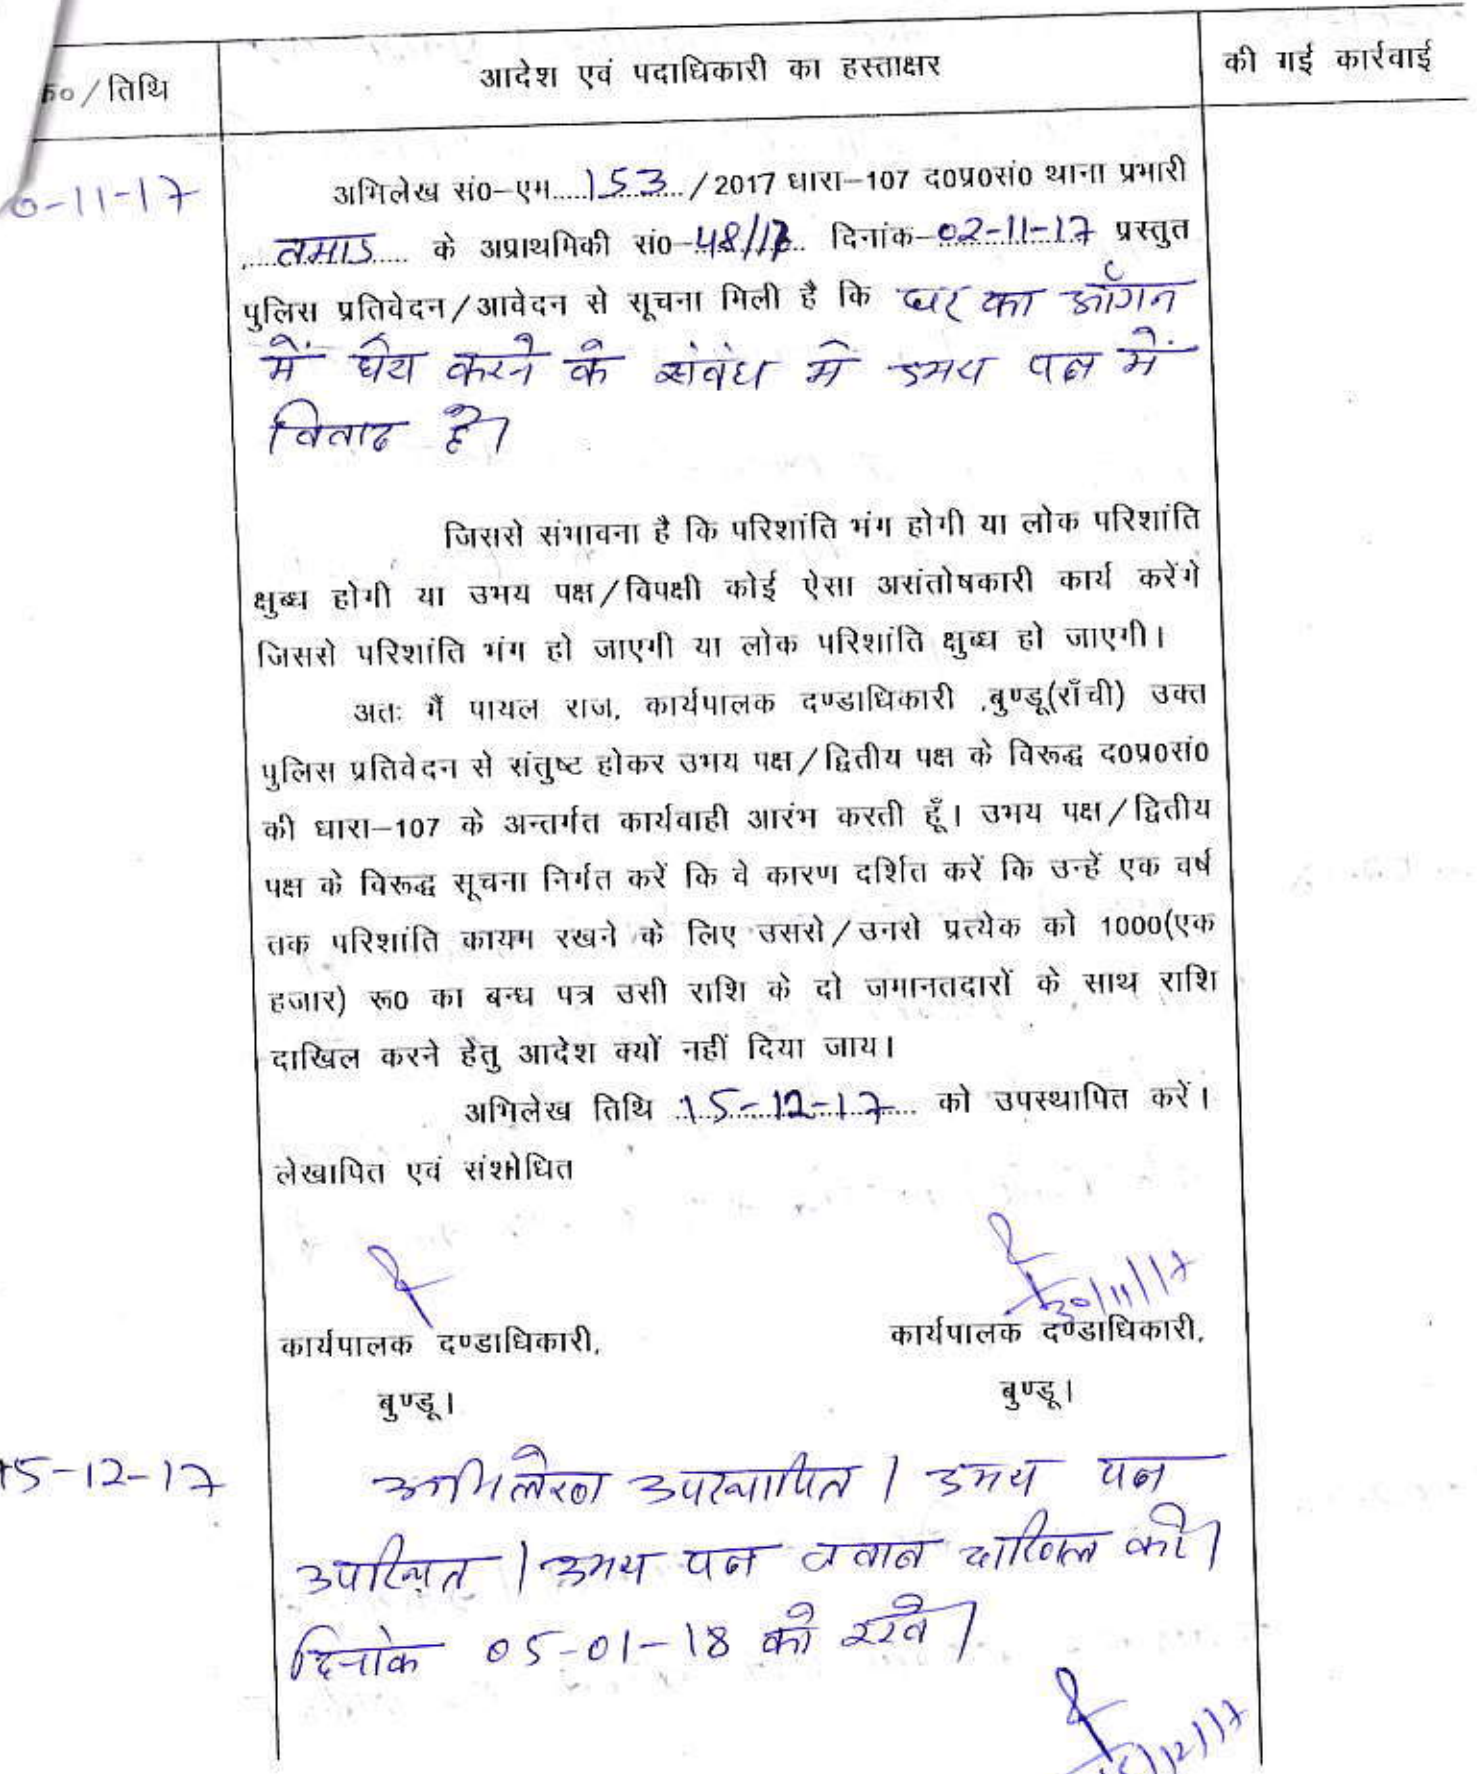 क्र०/तिथि
आदेश एवं पदाधिकारी का हस्ताक्षर
की गई कार्रवाई
0-11-17
अभिलेख सं०-एम.....153.../2017 धारा-107 द०प्र०सं० थाना प्रभारी
तमाड़ के अप्राथमिकी सं०-48/17 दिनांक-02-11-17 प्रस्तुत
पुलिस प्रतिवेदन/आवेदन से सूचना मिली है कि घर का आँगन
में घेरा करने के संबंध में उभय पक्ष में
विवाद है।
जिससे संभावना है कि परिशांति भंग होगी या लोक परिशांति
क्षुब्ध होगी या उभय पक्ष/विपक्षी कोई ऐसा असंतोषकारी कार्य करेंगे
जिससे परिशांति भंग हो जाएगी या लोक परिशांति क्षुब्ध हो जाएगी।
अतः मैं पायल राज, कार्यपालक दण्डाधिकारी ,बुण्डू(राँची) उक्त
पुलिस प्रतिवेदन से संतुष्ट होकर उभय पक्ष/द्वितीय पक्ष के विरूद्ध द०प्र०सं०
की धारा-107 के अन्तर्गत कार्यवाही आरंभ करती हूँ। उभय पक्ष/द्वितीय
पक्ष के विरूद्ध सूचना निर्गत करें कि वे कारण दर्शित करें कि उन्हें एक वर्ष
तक परिशांति कायम रखने के लिए उससे/उनसे प्रत्येक को 1000(एक
हजार) रू० का बन्ध पत्र उसी राशि के दो जमानतदारों के साथ राशि
दाखिल करने हेतु आदेश क्यों नहीं दिया जाय।
अभिलेख तिथि 15-12-17 को उपस्थापित करें।
लेखापित एवं संशोधित
30/11/17
कार्यपालक दण्डाधिकारी,
कार्यपालक दण्डाधिकारी,
बुण्डू।
बुण्डू।
15-12-17
अभिलेख उपस्थापित। उभय पक्ष
उपस्थित। उभय पक्ष दाखिल करें।
दिनांक 05-01-18 को रखें।
15/12/17